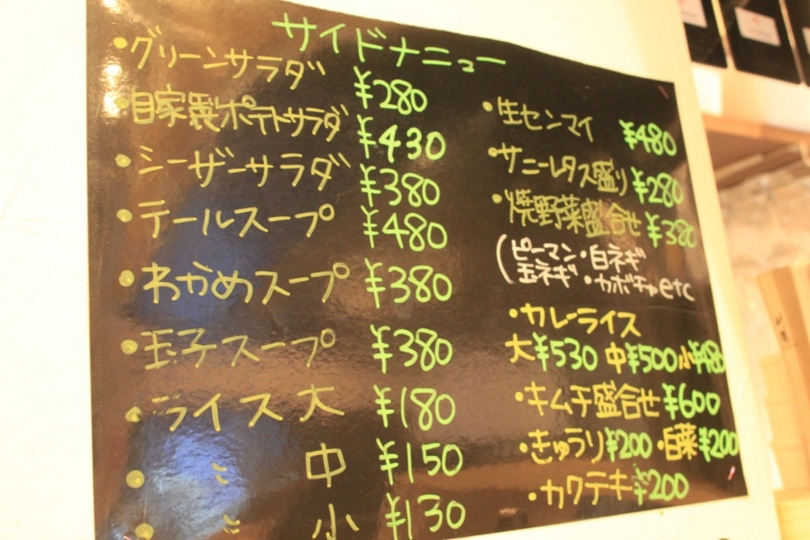 サイドメニュー
・グリーンサラダ ¥280
・自家製ポテトサラダ ¥430
・シーザーサラダ ¥380
・テールスープ ¥480
・わかめスープ ¥380
・玉子スープ ¥380
・ライス大 ¥180
・ 〃 中 ¥150
・ 〃 小 ¥130
・生センマイ ¥480
・サニーレタス盛り ¥280
・焼野菜盛合せ ¥380
(ピーマン・白ネギ
玉ネギ・カボチャetc
・カレーライス
大¥530 中¥500 小¥480
・キムチ盛合せ ¥600
・きゅうり¥200 ・白菜¥200
・カクテキ¥200